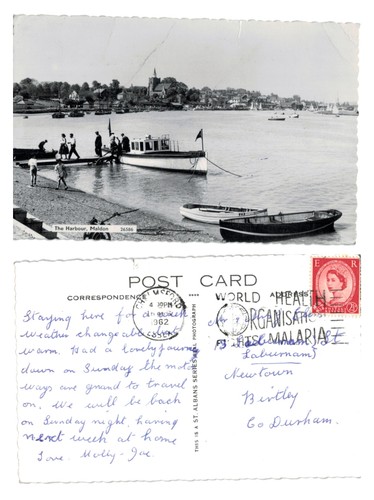 The Harbour, Maldon 26086
POST CARD
CORRESPONDENCE
ADDRESS
CHELMSFORD
4 30PM
1962
ESSEX
WORLD HEALTH
ORGANISATION
MALARIA
E R
THIS IS A ST. ALBANS SERIES REAL PHOTOGRAPH
Staying here for a week
weather changeable but
warm. Had a lovely journey
down on Sunday the motor
ways are grand to travel
on. We will be back
on Sunday night, having
next week at home
Love. Molly - Joe.
Laburnam
Newtown
Birtley
Co Durham.